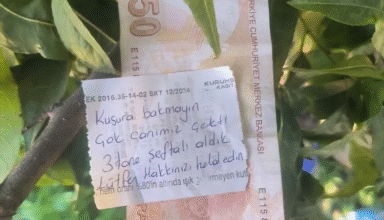 50
E115
TÜRKİYE CUMHURİYET MERKEZ BANKASI
E 115
EK 2016.35-14-02 SKT 12/2016
KURUMU
KAĞIT
Kusura bakmayın
Çok canımız çekti
3 tane şeftali aldık
Lütfen Hakkınızı helal edin
%80'in altında ışık
meyen kuf